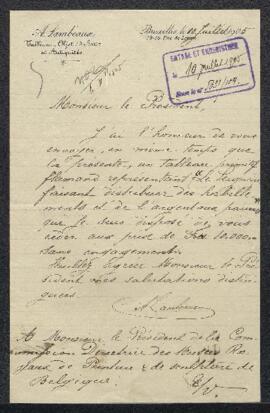 A. Lambeaux
Tableaux, Objets d'Art
et Antiquités
Bruxelles, le 10 Juillet 1905
DATE ET ENREGISTREMENT
10 juillet 1905
Monsieur le Président,
J'ai l'honneur de vous
envoyer, en même temps que
la présente, un tableau
flamand représentant
faisant distribuer des
ments et de l'argent aux pauvres
que je suis disposé de vous
céder au prix de frs 10.000.
sans engagement.
Veuillez agréer Monsieur le Pré-
sident mes salutations distin-
guées.
A Lambeaux
A Monsieur le Président de la Com-
mission Directrice des Musées Ro-
yaux de Peinture & de sculpture de
Belgique.
E/V.